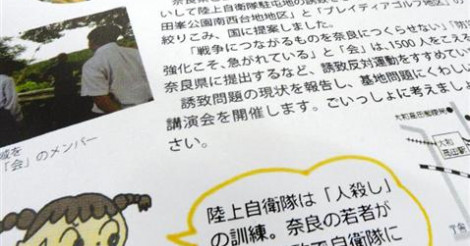 奈良県
いして陸上自衛隊駐屯地の誘致を
田峯公園南西台地地区」と「プレイディアゴルフ地区」の
絞りこみ、国に提案しました。
「戦争につながるものを奈良につくらせない」「
強化こそ、急がれている」と「会」は、1500人をこえる
奈良県に提出するなど、誘致反対運動をすすめてい
誘致問題の現状を報告し、基地問題にくわしい
講演会を開催します。ごいっしょに考えましょ
さい。
域を
「会」のメンバー
大和
高田駅
陸上自衛隊は「人殺し」
の訓練。奈良の若者が
自衛隊に